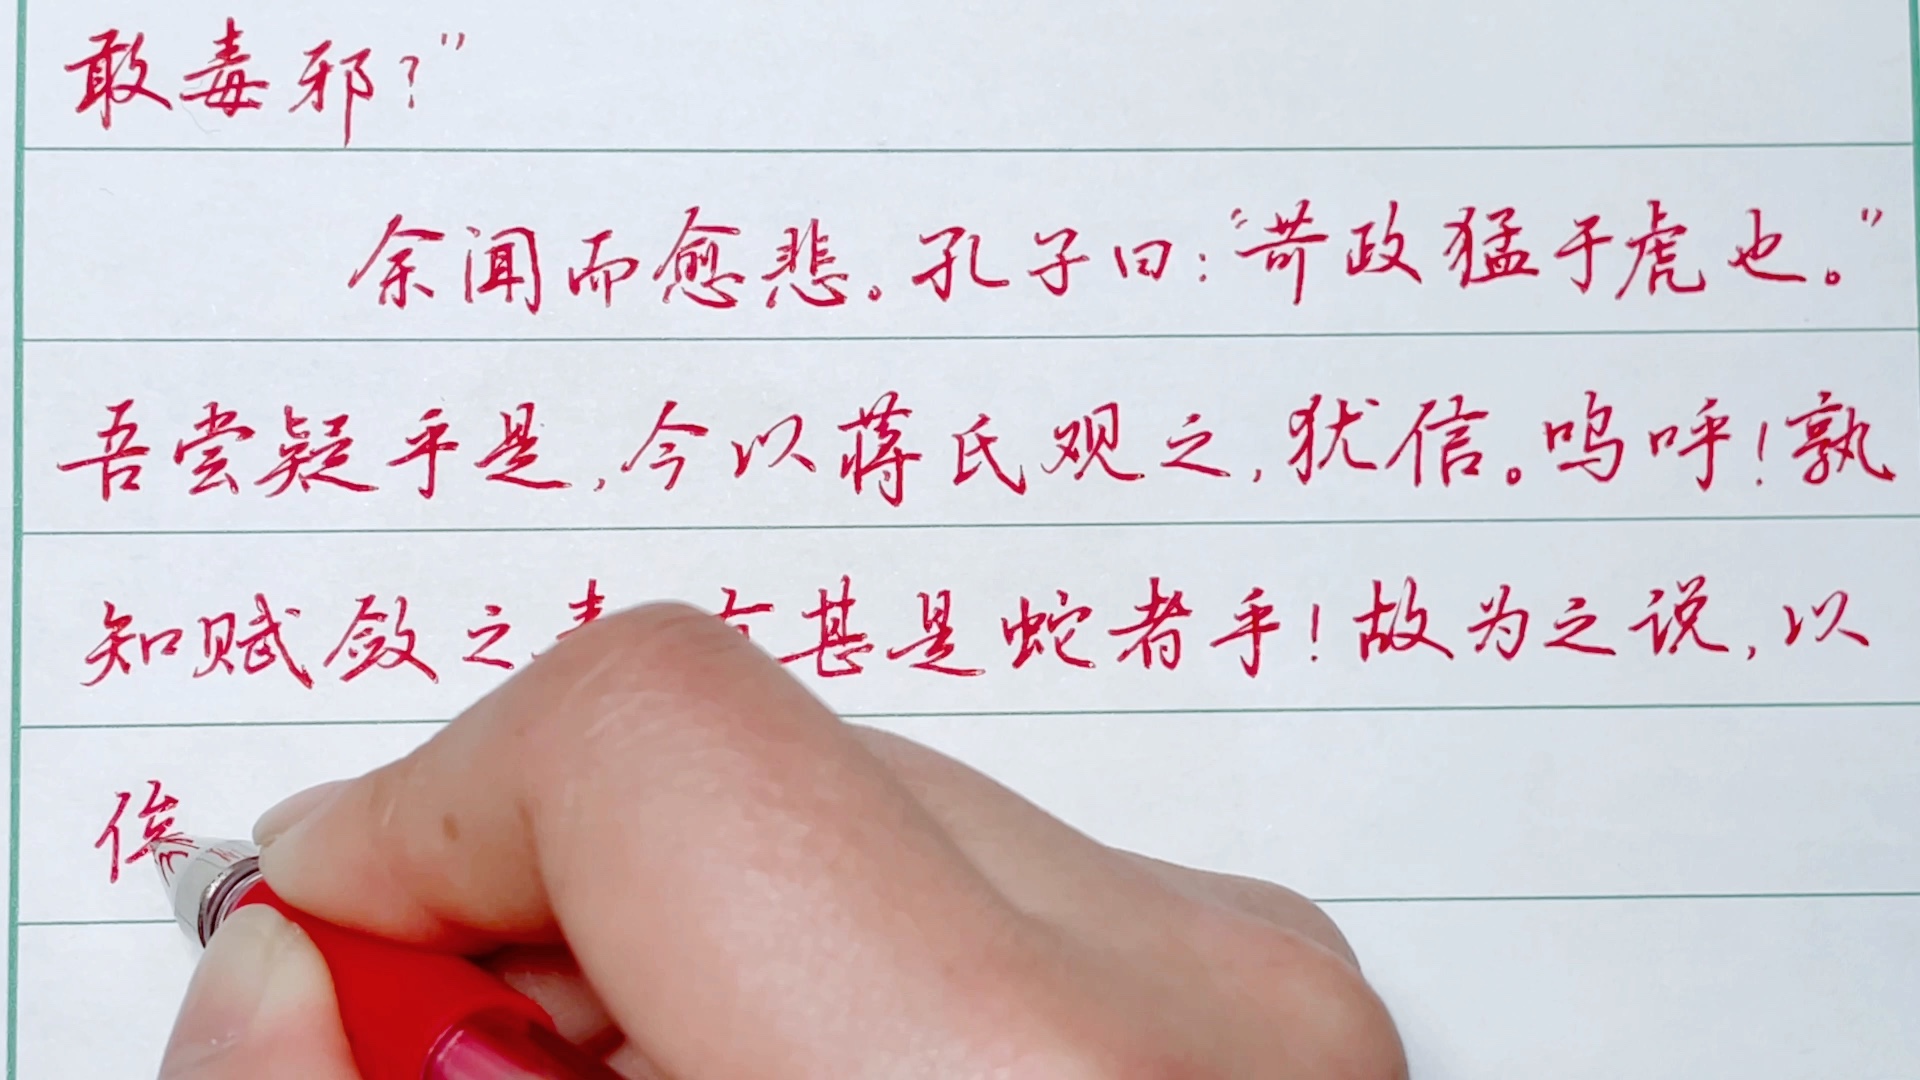 敢毒邪？”
余闻而愈悲。孔子曰：“苛政猛于虎也。”
吾尝疑乎是，今以蒋氏观之，犹信。呜呼！孰
知赋敛之毒有甚是蛇者乎！故为之说，以
俟